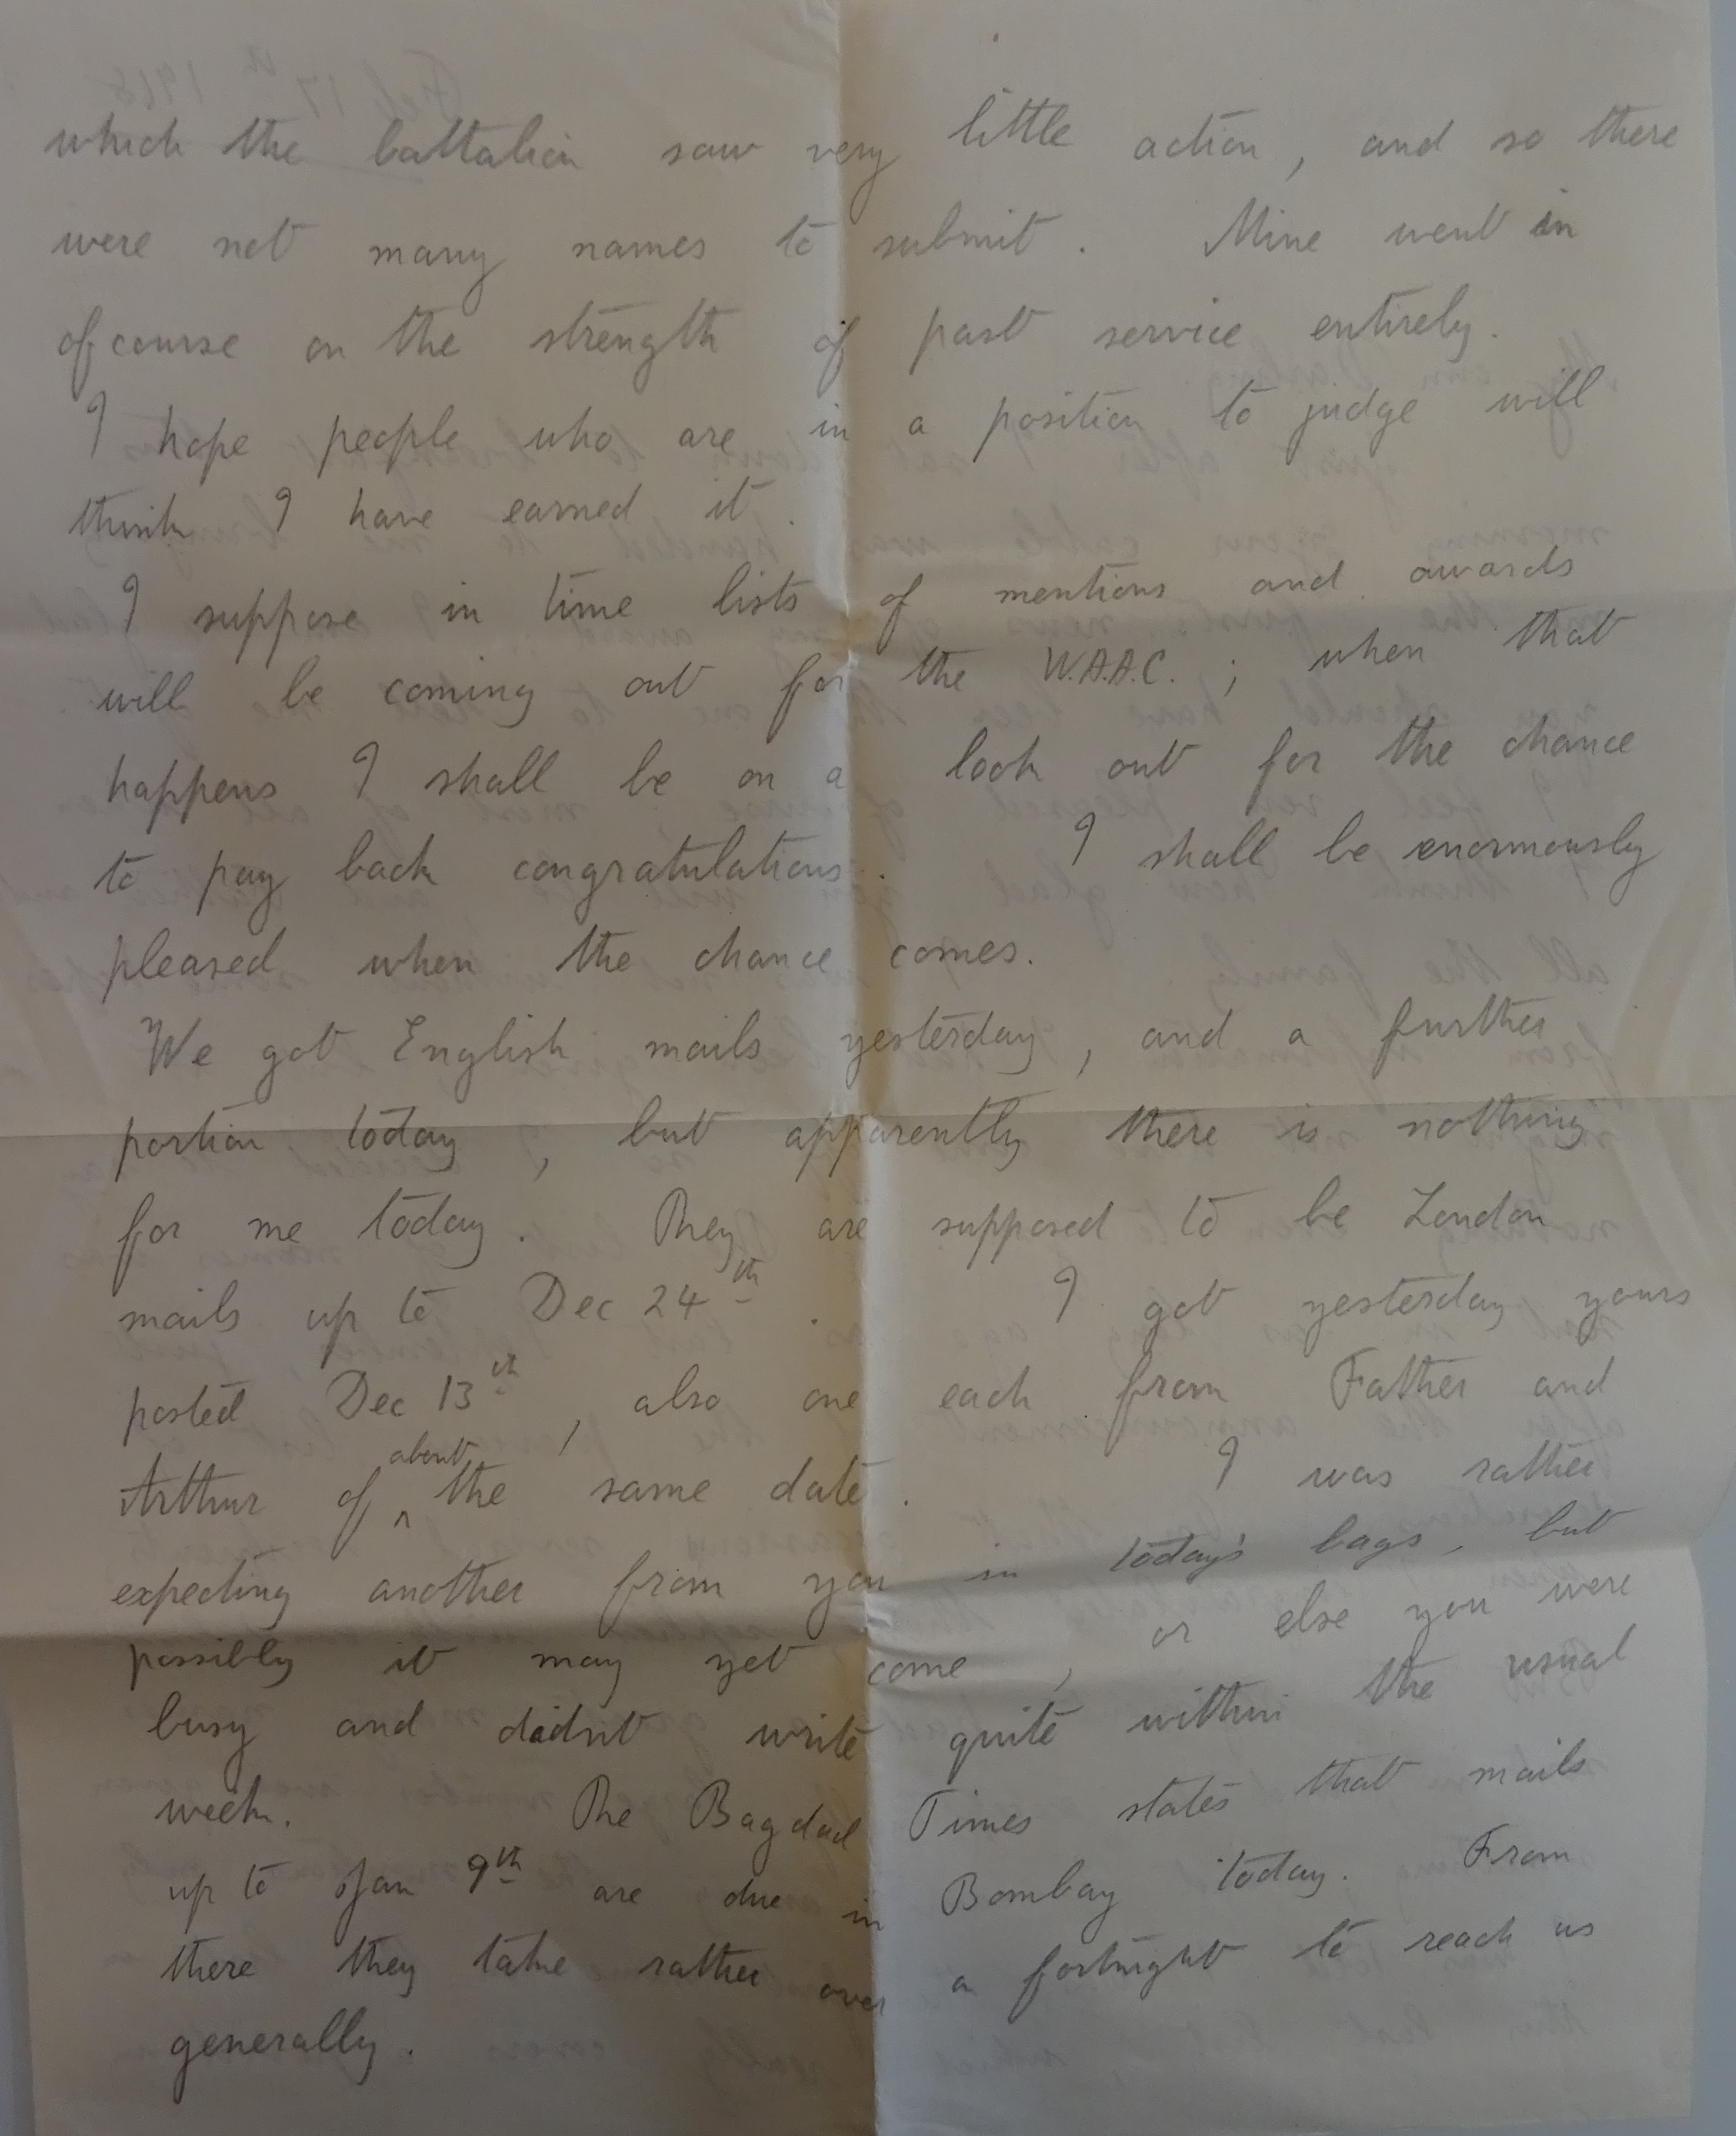 which the battalion saw very little action, and so there
were not many names to submit. Mine went in
of course on the strength of past service entirely.
I hope people who are in a position to judge will
think I have earned it.
I suppose in time lists of mentions and awards
will be coming out for the W.A.A.C.; when that
happens I shall be on a look out for the chance
to pay back congratulations. I shall be enormously
pleased when the chance comes.
We got English mails yesterday, and a further
portion today, but apparently there is nothing
for me today. They are supposed to be London
mails up to Dec 24th. I got yesterday yours
posted Dec 13th, also one each from Father and
Arthur of about the same date. I was rather
expecting another from you in today's bags, but
possibly it may yet come, or else you were
busy and didnt write quite within the usual
week. The Bagdad Times states that mails
up to Jan 9th are due in Bombay today. From
there they take rather over a fortnight to reach us
generally.